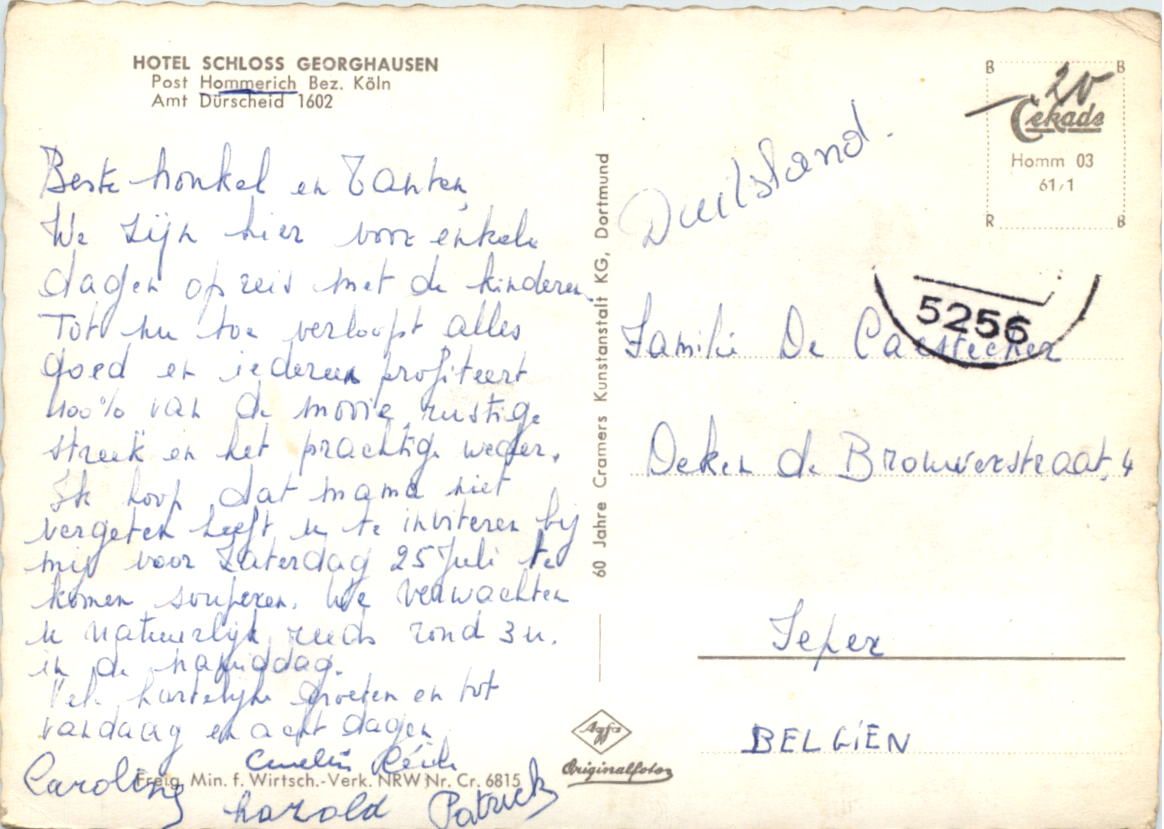 HOTEL SCHLOSS GEORGHAUSEN
Post Hommerich Bez. Köln
Amt Dürscheid 1602
Beste honkel en Tanten,
We zijn hier voor enkele
dagen op reis met de kinderen.
Tot nu toe verloopt alles
goed en iedereen profiteert
100% van de mooie, rustige
streek en het prachtige weder.
Ik hoop dat mama niet
vergeten heeft u te inviteren bij
mij voor Zaterdag 25 Juli te
komen souperen. We verwachten
u natuurlijk reeds rond 3 u.
in de namiddag.
Vele hartelijke groeten en tot
vandaag en acht dagen
Caroline
Harold Patrick
Freig. Min. f. Wirtsch.-Verk. NRW Nr. Cr. 6815
60 Jahre Cramers Kunstanstalt KG, Dortmund
Agfa
Originalfotos
B B
20
Cekade
Homm 03
61/1
R B
Duitsland.
5256
Familie De Caestecker
Deken de Brouwerstraat, 4
Ieper
BELGIËN